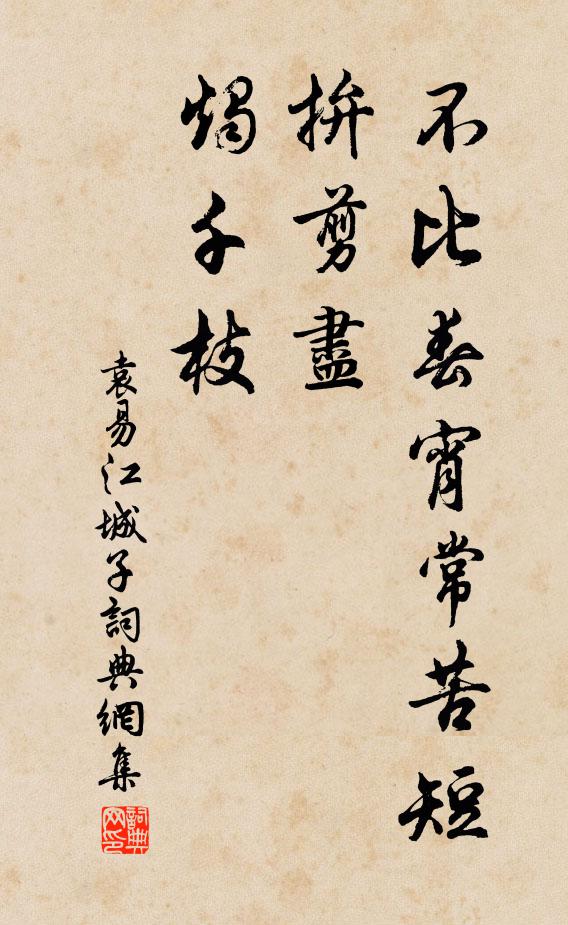 不比春宵常苦短
拚剪盡
燭千枝
袁易江城子詞典網集
詞典網印